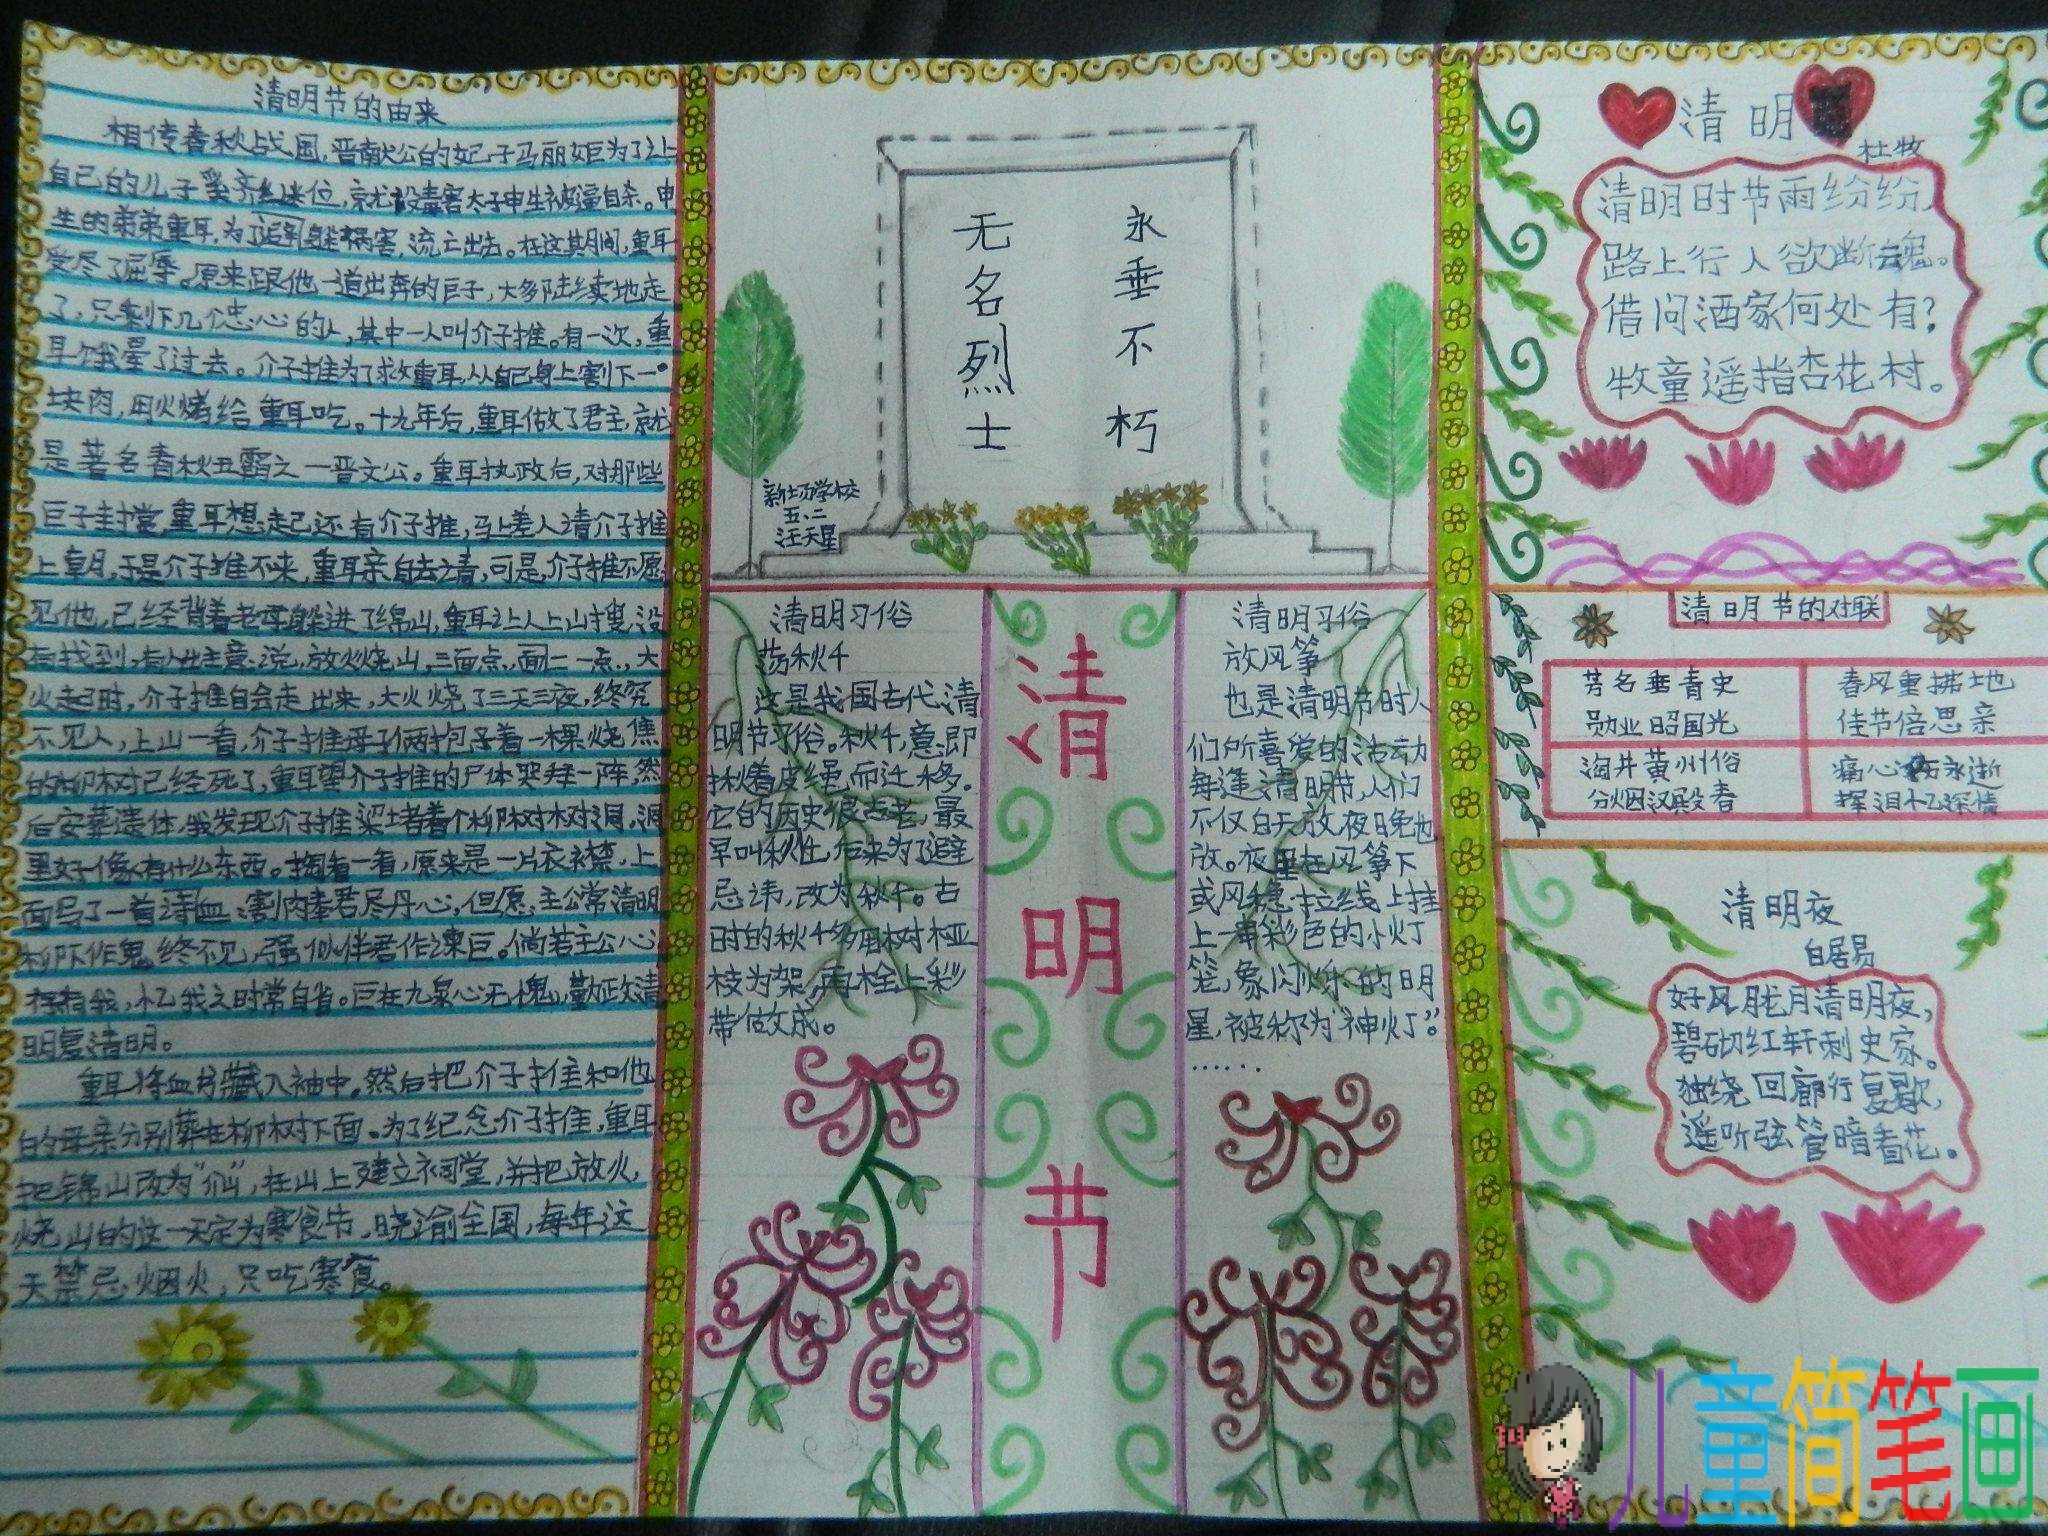 清明节的由来
相传春秋战国,晋献公的妃子马丽姬为了让
自己的儿子奚齐继位,就设毒害太子申生被逼自杀。申
生的弟弟重耳,为了避躲祸害,流亡出去。在这其间,重耳
受尽了屈辱。原来跟他一道出奔的臣子,大多陆续地走
了,只剩下几个忠心的人,其中一人叫介子推。有一次,重
耳饿晕了过去。介子推为了救重耳,从自己身上割下一
块肉,用火烤给重耳吃。十九年后,重耳做了君主,就
是著名春秋五霸之一晋文公。重耳执政后,对那些
臣子封赏,重耳想起还有介子推,马上差人请介子推
上朝,于是介子推不来,重耳亲自去请,可是,介子推不愿
见他,已经背着老母躲进了绵山,重耳让人上山搜,没
有找到,有人出主意说,放火烧山,三面点,面一点,大
火起时,介子推自会走出来,大火烧了三天三夜,终究
不见人,上山一看,介子推母子俩抱着一棵烧焦
的柳树已经死了,重耳望介子推的尸体哭拜一阵,然
后安葬遗体,发现介子推梁堵着个柳树树洞,洞
里好像有什么东西。掏看一看,原来是一片衣襟,上
面写了一首诗血:割肉奉君尽丹心,但愿主公常清明
柳下作鬼终不见,强似伴君作谏臣。倘若主公心
有我,忆我之时常自省。臣在九泉心无愧,勤政清
明复清明。
重耳将血书藏入袖中。然后把介子推和他
的母亲分别葬在柳树下面。为了纪念介子推,重耳
把锦山改为“介山”,在山上建立祠堂,并把放火
烧山的这一天定为寒食节,晓谕全国,每年这
天禁忌烟火,只吃寒食。
永垂不朽
无名烈士
新场学校
五、二
汪天星
清明习俗
荡秋千
这是我国古代清
明节习俗。秋千,意即
揪着皮绳而迁移。
它的历史很古老,最
早叫秋千,后来为了避
忌讳,改为秋千。古
时的秋千多用树桠
枝为架,再栓上彩
带做成。
清明节
清明习俗
放风筝
也是清明节时人
们所喜爱的活动
每逢清明节,人们
不仅白天放,夜晚也
放。夜里在风筝下
或风稳拉线上挂
上一串彩色的小灯
笼,象闪烁的明
星,被称为“神灯”。
……
清明
杜牧
清明时节雨纷纷,
路上行人欲断魂。
借问酒家何处有?
牧童遥指杏花村。
清明节的对联
芳名垂青史
勋业昭国光
春风重拂地
佳节倍思亲
淘井黄州俗
分烟汉殿春
痛心永逝
挥泪忆深情
清明夜
白居易
好风胧月清明夜,
碧砌红轩刺史家。
独绕回廊行复歇,
遥听弦管暗看花。
儿童简笔画